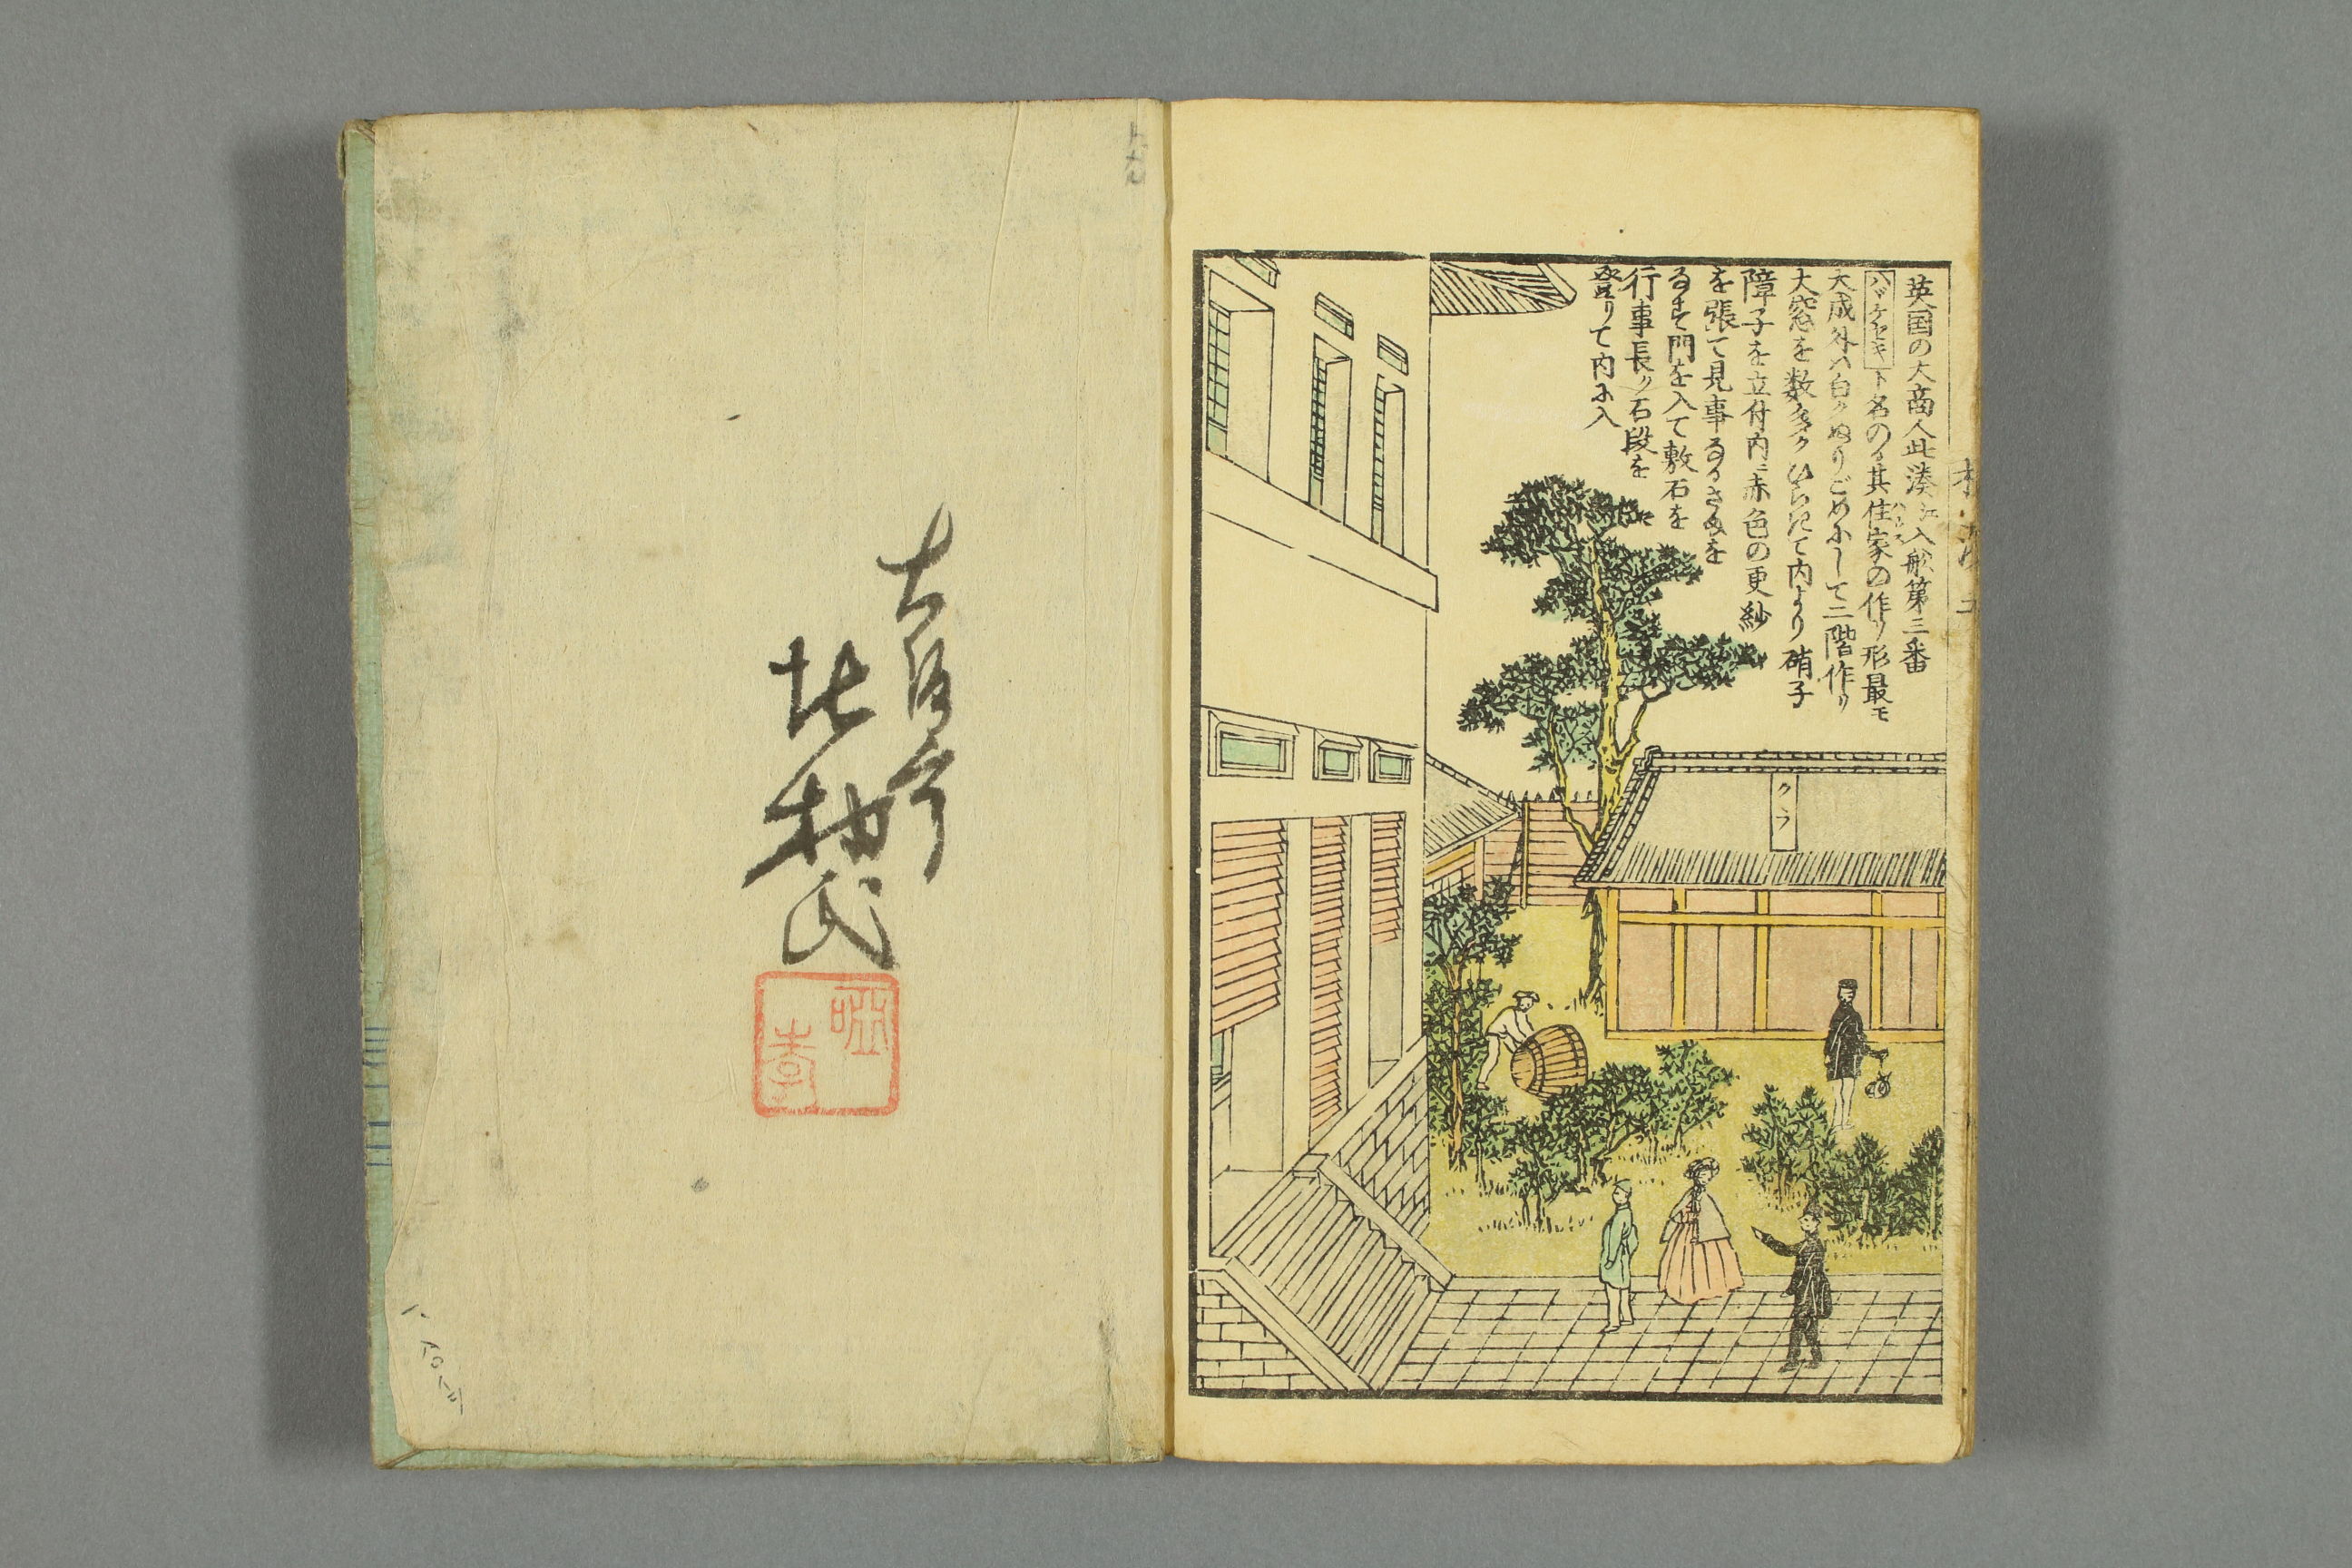 英国の大商人此湊江入船第三番
バゲセキト名のる其住家の作り形最モ
大成外ハ白くぬりごめにして二階作り
大窓を数多くひらきて内より硝子
障子を立付内ニ赤色の更紗
を張て見事なるきぬを
なす門を入て敷石を
行事長ク石段を
登りて内に入
クラ
北村氏